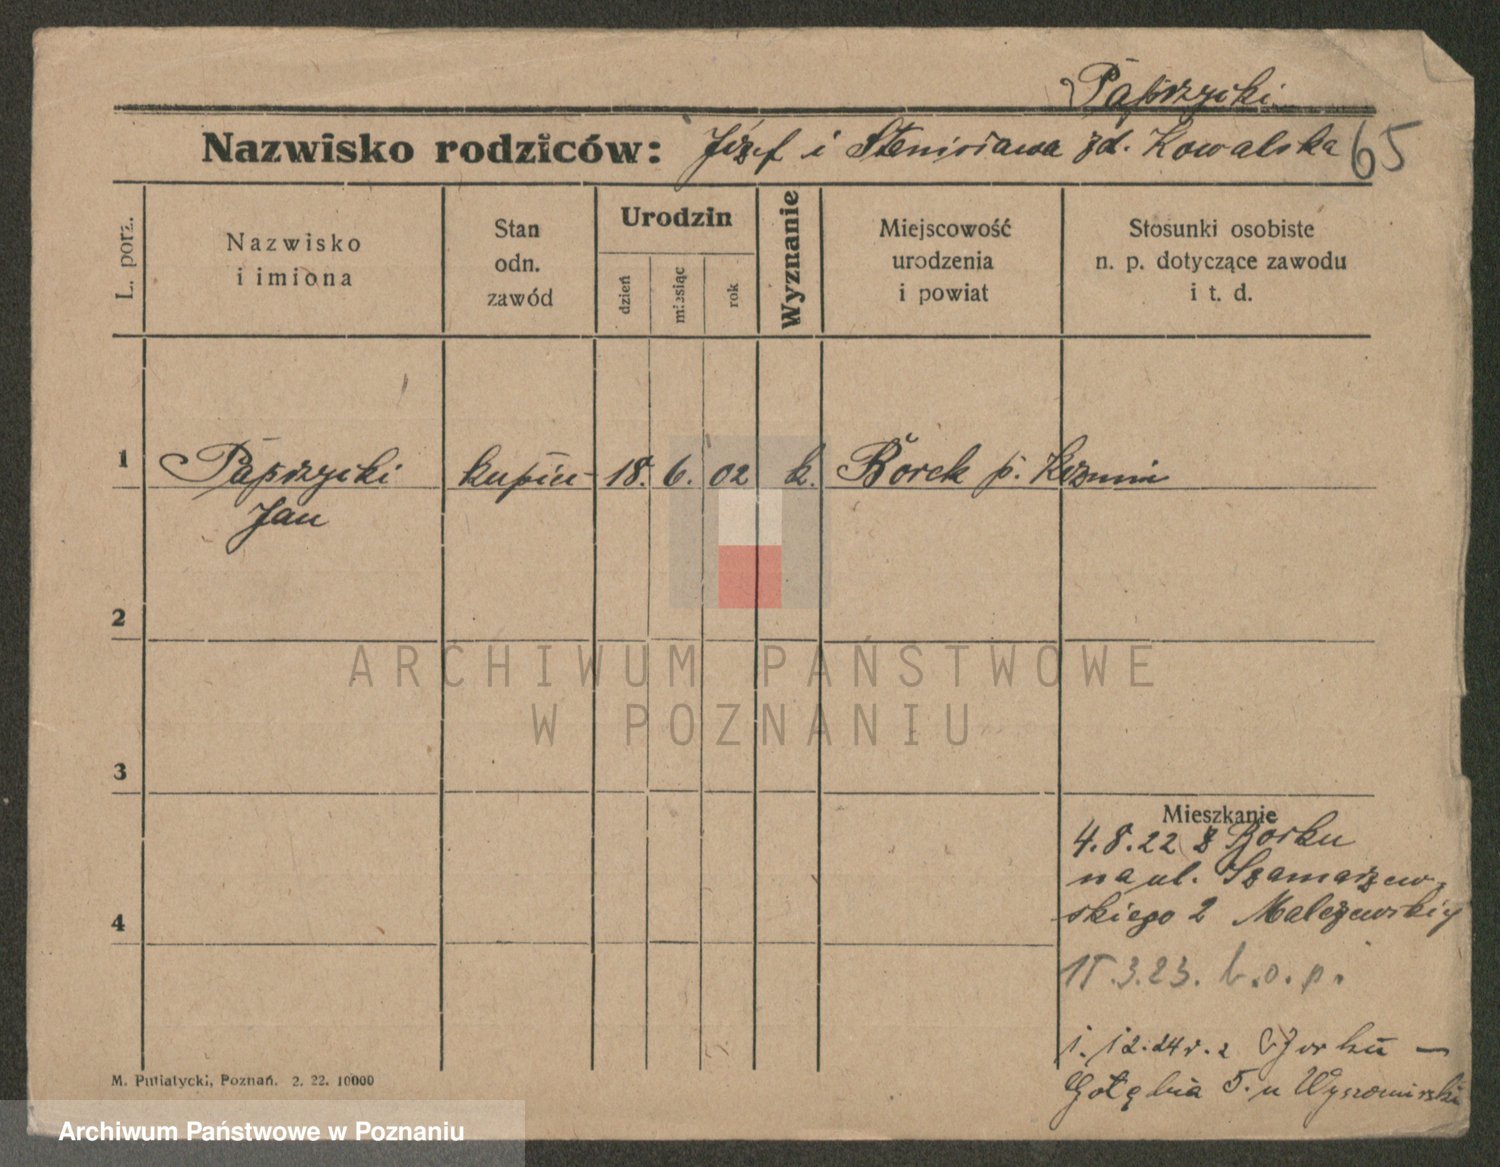 Paprzycki
Nazwisko rodziców: Józef i Stenisława zd. Kowalska 65
L. porz.
Nazwisko
i imiona
Stan
odn.
zawód
Urodzin
dzień
miesiąc
rok
Wyznanie
Miejscowość
urodzenia
i powiat
Stosunki osobiste
n. p. dotyczące zawodu
i t. d.
1 Paprzycki kupiec 18. 6. 02 k. Borek p. Koźmin
Jan
2
ARCHIWUM PAŃSTWOWE
W POZNANIU
3
Mieszkanie
4.8.22 z Borku
na ul. Szamarzew-
skiego 2 Maleszewskiej
4
15.3.23. b.o.p.
1.12.24 r. z Borku —
Gołębia 5. u Wyszomirski
M. Putiatycki, Poznań. 2. 22. 10000
Archiwum Państwowe w Poznaniu